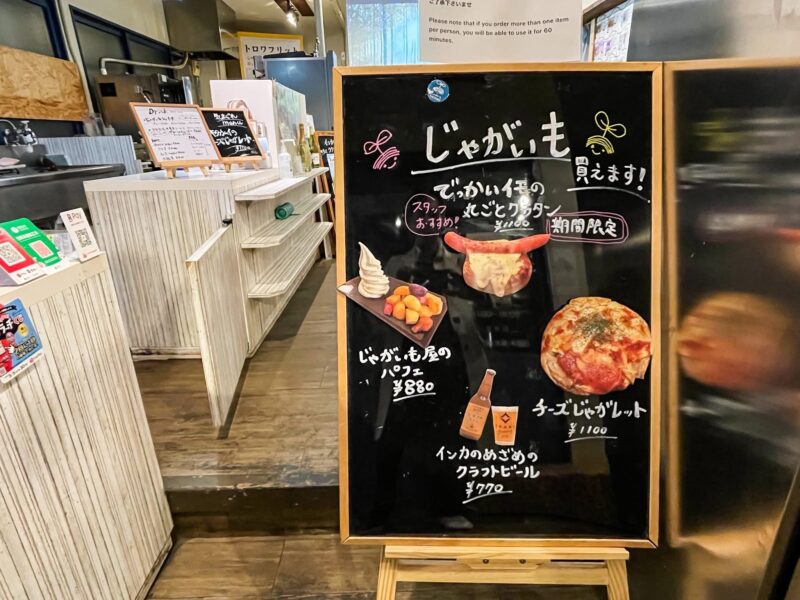 ご了承下さいませ
Please note that if you order more than one item
per person, you will be able to use it for 60
minutes.
トロワフリット
じゃがいも
買えます!
でっかいイモの
丸ごとグラタン
¥1100
スタッフ
おすすめ!
期間限定
じゃがいも屋の
パフェ
¥880
チーズじゃがレット
¥1100
インカのめざめの
クラフトビール
¥770